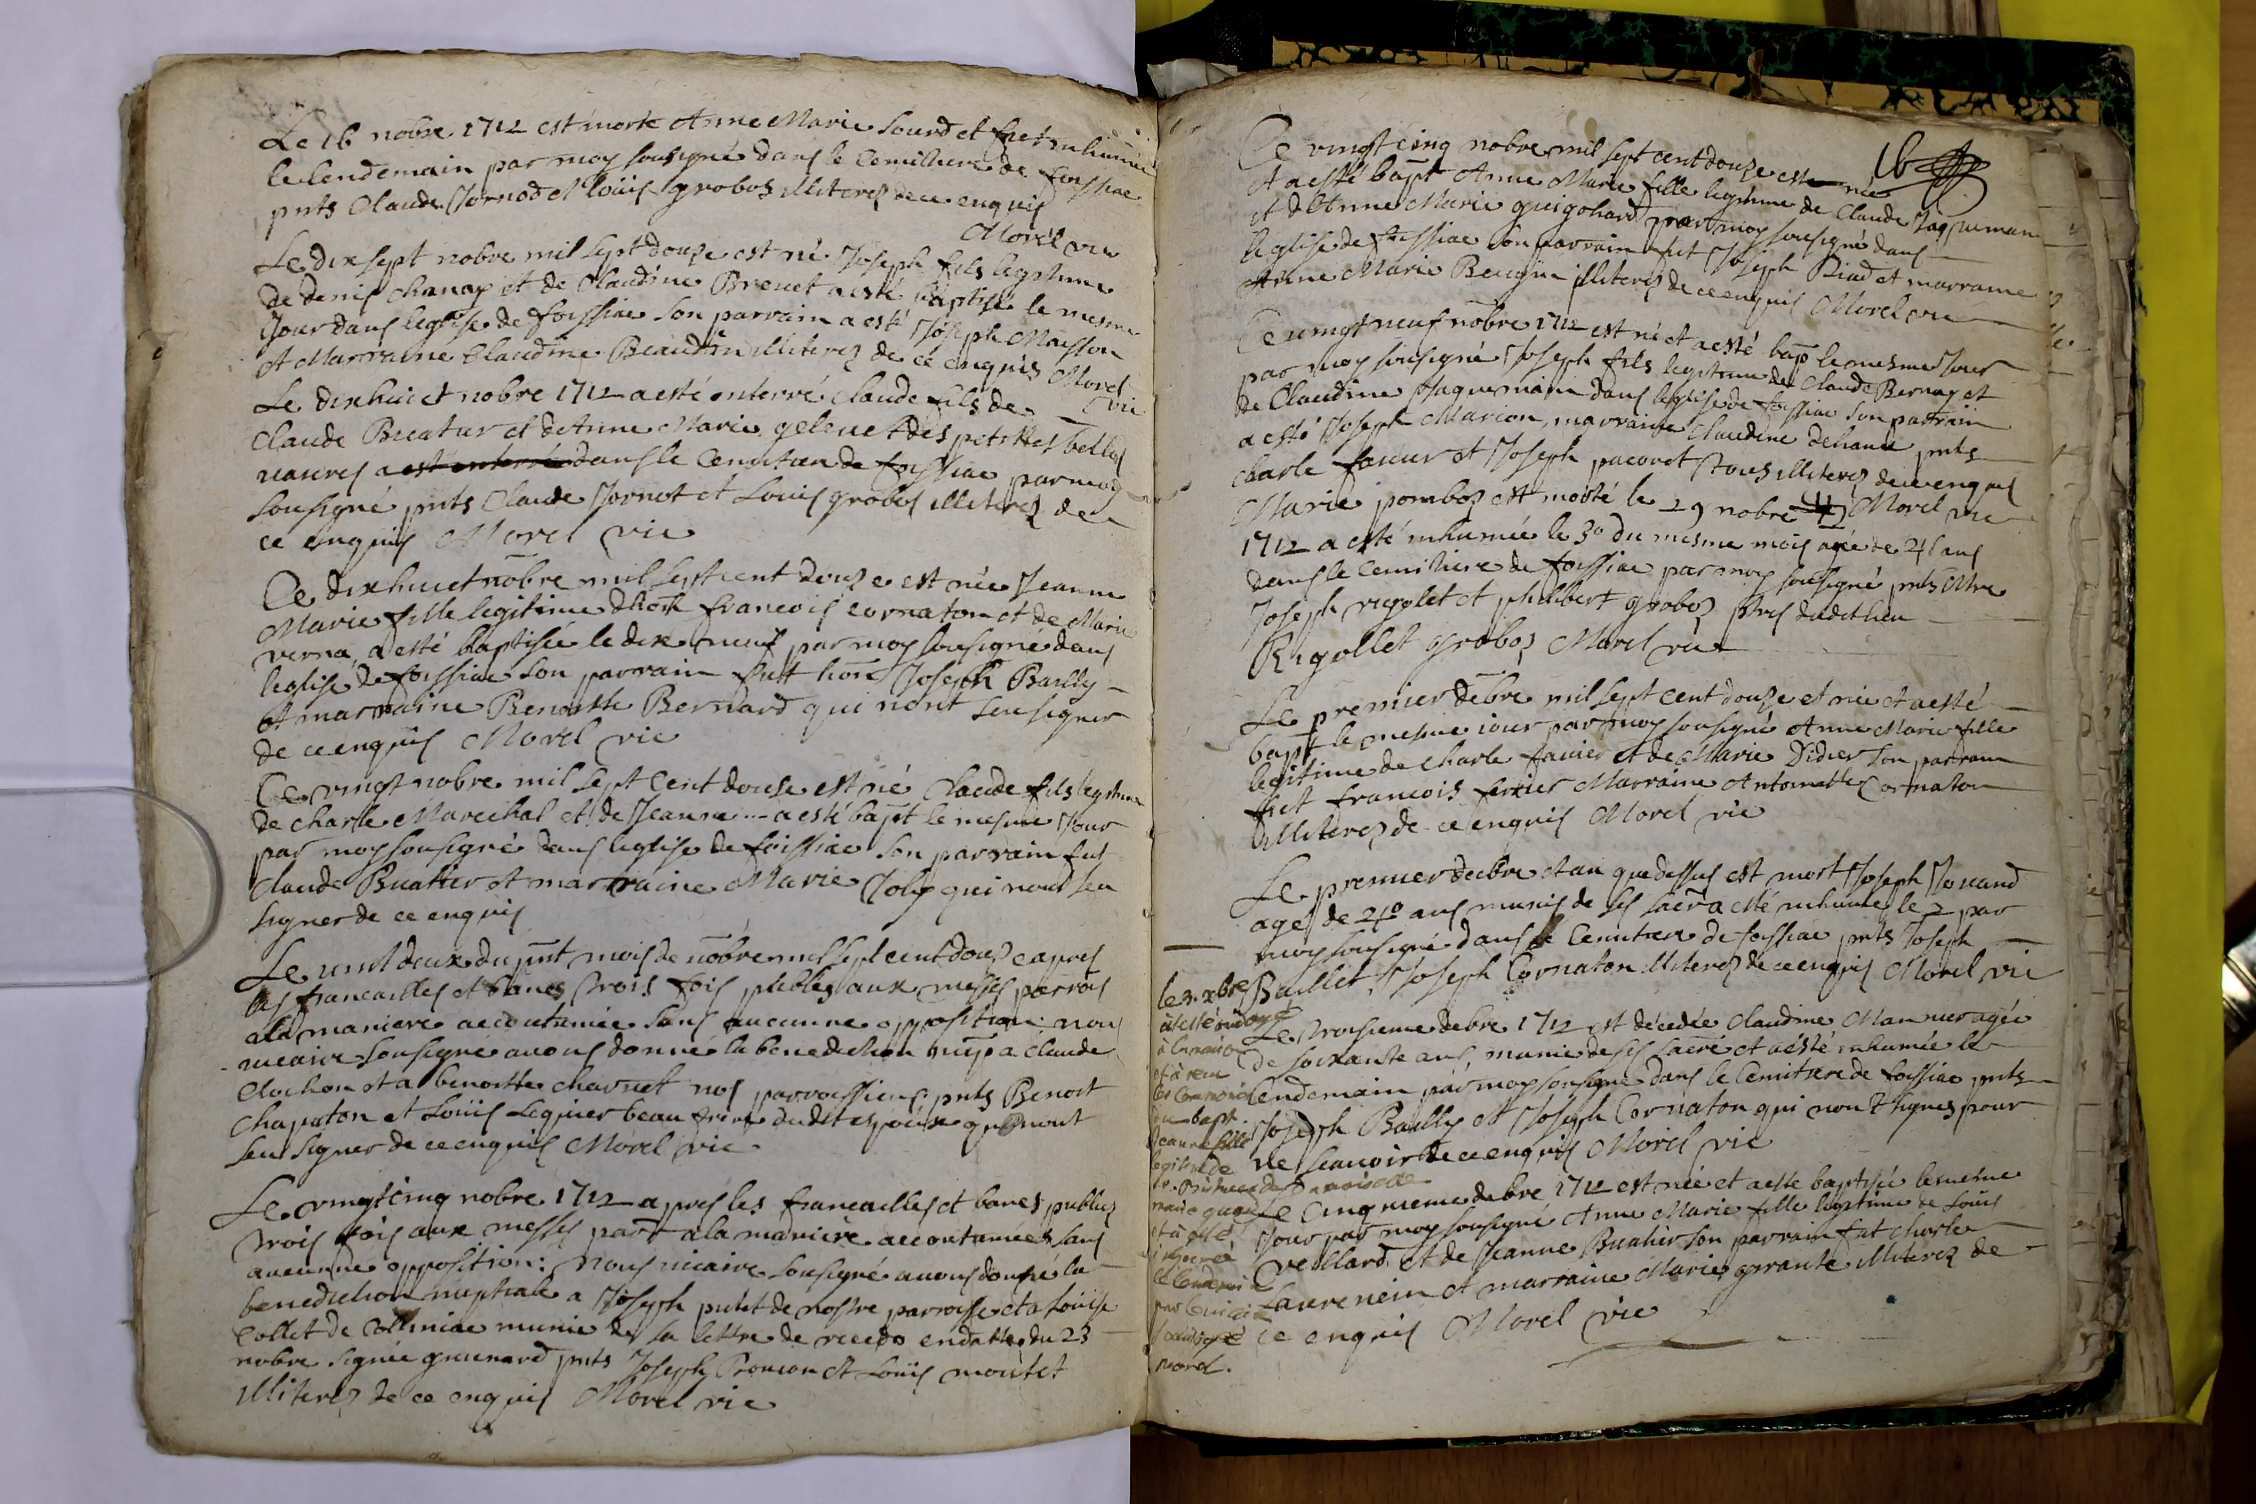 Le 16 nobre 1712 est morte Anne Marie Sourd et fut inhumée
le lendemain par moy sousigné dans le Cemittiere de foissiac
pnts Claude Jornod et loüis grobos illiterez de ce enquis
Morel vic
Le dix sept nobre mil sept douze est né Joseph fils legitime
de denis chanay et de Claudine Brevet a esté baptisé le mesme
Jour dans leglise de foissiac son parrain a esté Joseph Maisson
et Marraine Claudine Beaudin illiterez de ce enquis Morel
vic
Le dixhuict nobre 1712 a esté enterré claude fils de
Claude Buatier et de Anne Marie gelenet des petittes belles
vavres dans le Cemitiere de foissiac par moy
sousigné pnts Claude Jornot et Louis grobos illiterez de
ce enquis Morel vic
Ce dixhuict nobre mil sept cent douze est née Jeanne
Marie fille legitime dhon francois cornaton et de Marie
verna, a esté baptisée le dix neuf par moy sousigné dans
leglise de foissiac son parrain fut hon Joseph Bailly
et marraine Benoitte Bernard qui nont sceu signer
de ce enquis Morel vic
Ce vingt nobre mil sept Cent douse est né Claude fils legitime
de charle Marechal et de Jeanne --- a esté bapt le mesme Jour
par moy sousigné dans leglise de foissiac son parrain fut
Claude Buatier et marraine Marie Joly qui nont seu
signer de ce enquis
Le vint deux du pnt mois de nobre mil sept cent douze apres
les francailles et bancs trois fois publiés aux messes parrois
a la maniere accoutumée sans aucunne opposition nous
vicaire sousigné avons donné la benediction nup a Claude
Clochon et a benoitte charnet nos parroissiens pnts Benoit
Chapaton et Loüis Lequier beau frere dudit espoux qui nont
seu signer de ce enquis Morel vic
Le vingt cinq nobre 1712 apres les francailles et bancs publiez
trois fois aux messes parr a la maniere accoutumées sans
aucunne opposition: Nous vicaire sousigné avons donné la
benediction nuptiale a Joseph putet de nostre parroisse et a Loüise
Collet de Colliniac munie de sa lettre de recedo endattée du 23
nobre signée guenard pnts Joseph Croncon et Loüis moutet
illiterez de ce enquis Morel vic
16
Ce vingt cinq nobre mil sept cent douze est née
et a esté bapt Anne Marie fille legitime de Claude Jaqueman
et d'Anne Marie guigohard par moy sousigné dans
leglise de foissiac son parrain fut Joseph Riad et marraine
Anne Marie illiterez de ce enquis Morel vic
Ce vingt neuf nobre 1712 est né et a esté bap le mesme Jour
par moy sousigné Joseph fils legitime de Claude Bernay et
de Claudine Jaquemain dans leglise de foissiac son parrain
a esté Joseph Marcon, marraine Claudine pnts
charle favier et Joseph pacoret tous illiterez de ce enquis
Morel vic
Marie pomboz est morte le 29 nobre
1712 a esté inhumée le 30 du mesme mois agée de ans
dans le Cemittiere de foissiac par moy sousigné pnts
Joseph rigolet et philibert groboz dudit lieu
Rigollet groboz Morel vic
Le premier debre mil sept cent douze et née et a esté
bapt le mesme iour par moy sousigné Anne Marie fille
legitime de charle favier et de Marie Didier son parrain
fut francois ferrier Marraine Antoinette Cornaton
illiterez de ce enquis Morel vic
Le premier decbre et an que dessus est mort Joseph Jovand
agé de 40 ans munis de ses sacra esté inhumé le 2 par
moy sousigné dans le Cemitiere de foissiac pnts Joseph
Baillet, Joseph Cornaton illiterez de ce enquis Morel vic
Le troisieme debre 1712 est décedée Claudine Mannier agée
de soixante ans, munie de ses sacre et a esté inhumée le
lendemain par moy sousigné dans le Cemitiere de foissiac pnts
Joseph Bailly et Joseph Cornaton qui nont signes pour
ne scavoir de ce enquis Morel vic
Le Cinquieme debre 1712 est née et a esté baptisée le mesme
Jour par moy sousigné Anne Marie fille legitime de Loüis
veillard, et de Jeanne Buatier son parrain fut charle
Laurencin et marraine Marie illiterez de
ce enquis Morel vic
le 3. xbre
à esté ondoyé
à la maison
et à receu
les ceremonies
du bapt
Jeanne fille
legitime de
et à esté
le lendemain
par le vicaire
sousigné
morel.